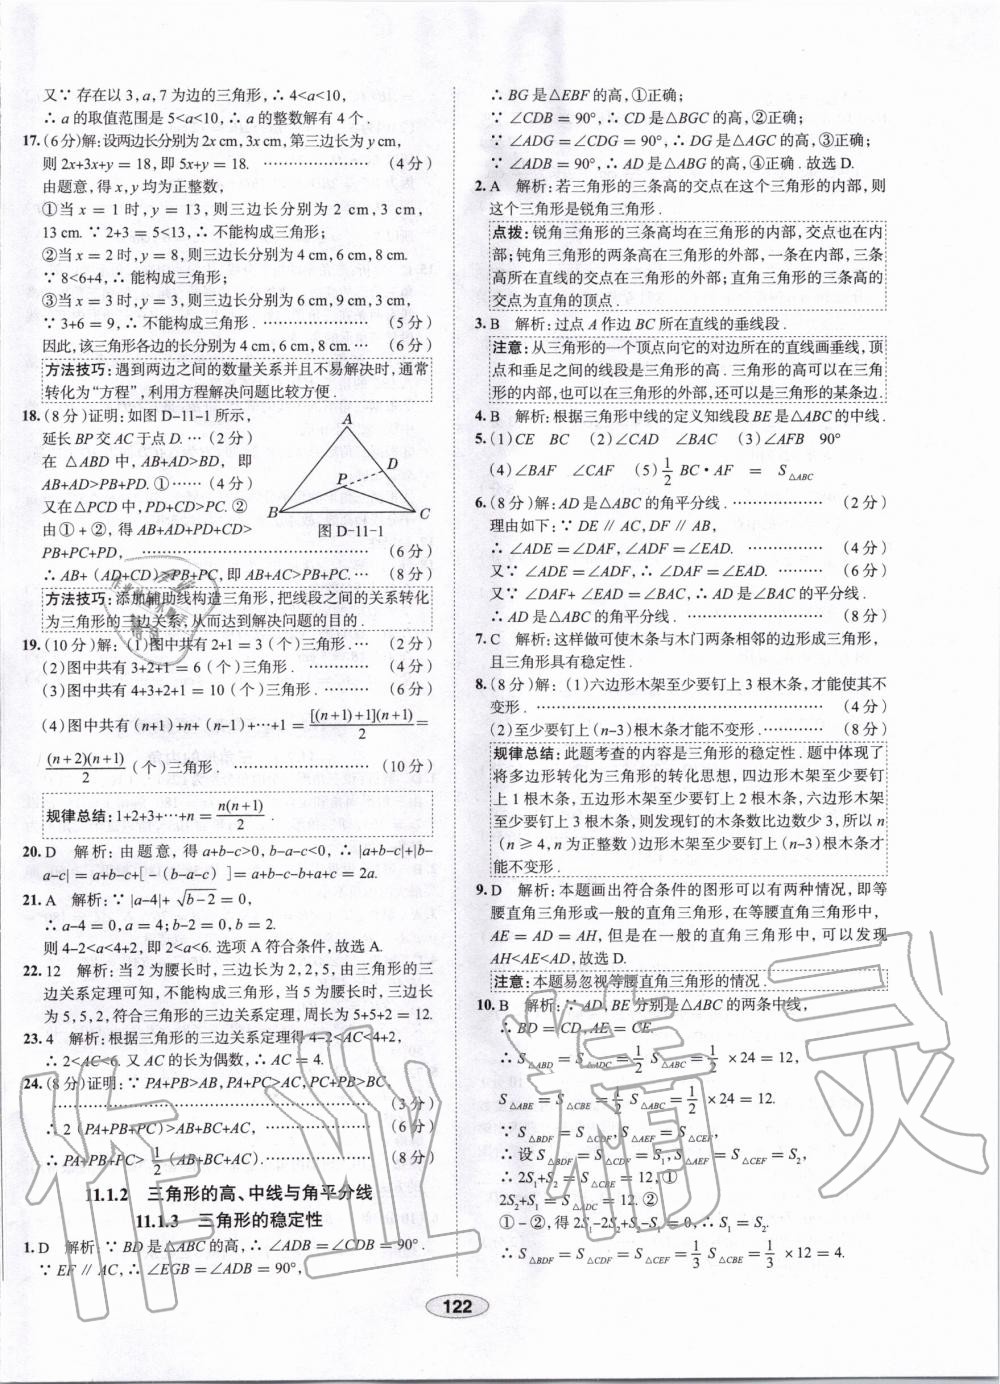 又∵ 存在以 3, a, 7 为边的三角形, ∴ 4<a<10,
∴ a 的取值范围是 5<a<10, ∴ a 的整数解有 4 个.
17. (6分)解: 设两边长分别为 2x cm, 3x cm, 第三边长为 y cm,
则 2x+3x+y = 18, 即 5x+y = 18. ………………… (4分)
由题意, 得 x, y 均为正整数,
①当 x = 1 时, y = 13, 则三边长分别为 2 cm, 3 cm,
13 cm. ∵ 2+3 = 5<13, ∴ 不能构成三角形;
②当 x = 2 时, y = 8, 则三边长分别为 4 cm, 6 cm, 8 cm.
∵ 8<6+4, ∴ 能构成三角形;
③当 x = 3 时, y = 3, 则三边长分别为 6 cm, 9 cm, 3 cm,
∵ 3+6 = 9, ∴ 不能构成三角形. ………………… (5分)
因此, 该三角形各边的长分别为 4 cm, 6 cm, 8 cm. … (6分)
方法技巧: 遇到两边之间的数量关系并且不易解决时, 通常
转化为“方程”, 利用方程解决问题比较方便.
18. (8分)证明: 如图 D-11-1 所示,
延长 BP 交 AC 于点 D. … (2分)
在 △ABD 中, AB+AD>BD, 即
AB+AD>PB+PD. ①…… (4分)
又在△PCD 中, PD+CD>PC. ②
由①+②, 得 AB+AD+PD+CD>
A
B
C
D
P
图 D-11-1
PB+PC+PD, ………………………………… (6分)
∴ AB+(AD+CD)>PB+PC, 即 AB+AC>PB+PC. … (8分)
方法技巧: 添加辅助线构造三角形, 把线段之间的关系转化
为三角形的三边关系, 从而达到解决问题的目的.
19. (10分)解: (1)图中共有 2+1 = 3 (个)三角形. … (2分)
(2)图中共有 3+2+1 = 6 (个)三角形. ………… (4分)
(3)图中共有 4+3+2+1 = 10 (个)三角形. ……… (6分)
(4)图中共有 (n+1)+n+(n-1)+…+1 = [(n+1)+1](n+1)/2 =
(n+2)(n+1)/2 (个)三角形. ………………… (10分)
规律总结: 1+2+3+…+n = n(n+1)/2.
20. D 解析: 由题意, 得 a+b-c>0, b-a-c<0, ∴ |a+b-c|+|b-
a-c| = a+b-c+[-(b-a-c)] = a+b-c-b+a+c = 2a.
21. A 解析: ∵ |a-4|+√(b-2) = 0,
∴ a-4 = 0, a = 4; b-2 = 0, b = 2.
则 4-2<a<4+2, 即 2<a<6. 选项 A 符合条件, 故选 A.
22. 12 解析: 当 2 为腰长时, 三边长为 2, 2, 5, 由三角形的三
边关系定理可知, 不能构成三角形, 当 5 为腰长时, 三边长
为 5, 5, 2, 符合三角形的三边关系定理, 周长为 5+5+2 = 12.
23. 4 解析: 根据三角形的三边关系定理得 4-2<AC<4+2,
∴ 2<AC<6. 又 AC 的长为偶数, ∴ AC = 4.
24. (8分)证明: ∵ PA+PB>AB, PA+PC>AC, PC+PB>BC,
………………………………………………… (3分)
∴ 2(PA+PB+PC)>AB+BC+AC, ……………… (6分)
∴ PA+PB+PC> 1/2 (AB+BC+AC). ……………… (8分)
11.1.2 三角形的高、中线与角平分线
11.1.3 三角形的稳定性
1. D 解析: ∵ BD 是△ABC 的高, ∴ ∠ADB = ∠CDB = 90°.
∵ EF // AC, ∴ ∠EGB = ∠ADB = 90°,
∴ BG 是△EBF 的高, ①正确;
∵ ∠CDB = 90°, ∴ CD 是△BGC 的高, ②正确;
∵ ∠ADG = ∠CDG = 90°, ∴ DG 是△AGC 的高, ③正确;
∵ ∠ADB = 90°, ∴ AD 是△ABG 的高, ④正确. 故选 D.
2. A 解析: 若三角形的三条高的交点在这个三角形的内部, 则
这个三角形是锐角三角形.
点拨: 锐角三角形的三条高均在三角形的内部, 交点也在内
部; 钝角三角形的两条高在三角形的外部, 一条在内部, 三条
高所在直线的交点在三角形的外部; 直角三角形的三条高的
交点为直角的顶点.
3. B 解析: 过点 A 作边 BC 所在直线的垂线段.
注意: 从三角形的一个顶点向它的对边所在的直线画垂线, 顶
点和垂足之间的线段是三角形的高. 三角形的高可以在三角
形的内部, 也可以在三角形的外部, 还可以是三角形的某条边.
4. B 解析: 根据三角形中线的定义知线段 BE 是△ABC 的中线.
5. (1)CE BC (2)∠CAD ∠BAC (3)∠AFB 90°
(4)∠BAF ∠CAF (5) 1/2 BC·AF = S△ABC
6. (8分)解: AD 是△ABC 的角平分线. ……………… (2分)
理由如下: ∵ DE // AC, DF // AB,
∴ ∠ADE = ∠DAF, ∠ADF = ∠EAD. …………… (4分)
又∵ ∠ADE = ∠ADF, ∴ ∠DAF = ∠EAD. ……… (6分)
又∵ ∠DAF+∠EAD = ∠BAC,
∴ AD 是△ABC 的角平分线. …………………… (8分)
7. C 解析: 这样做可使木条与木门两条相邻的边形成三角形,
且三角形具有稳定性.
8. (8分)解: (1)六边形木架至少要钉上 3 根木条, 才能使其不
变形. ……………………………………………… (4分)
(2)至少要钉上 (n-3) 根木条才能不变形. ……… (8分)
规律总结: 此题考查的内容是三角形的稳定性. 题中体现了
将多边形转化为三角形的转化思想, 四边形木架至少要钉
上 1 根木条, 五边形木架至少要钉上 2 根木条, 六边形木架
至少要钉上 3 根木条, 则发现钉的木条数比边数少 3, 所以 n
(n ⩾ 4, n 为正整数)边形木架至少要钉上 (n-3) 根木条才
能不变形.
9. D 解析: 本题画出符合条件的图形可以有两种情况, 即等
腰直角三角形或一般的直角三角形, 在等腰直角三角形中,
AE = AD = AH, 但是在一般的直角三角形中, 可以发现
AH<AE<AD, 故选 D.
注意: 本题易忽视等腰直角三角形的情况.
10. B 解析: ∵ AD, BE 分别是△ABC 的两条中线,
∴ BD = CD, AE = CE.
∴ S△ABD = S△ADC = 1/2 S△ABC = 1/2 ×24 = 12,
S△ABE = S△CBE = 1/2 S△ABC = 1/2 ×24 = 12.
∵ S△BDF = S△CDF, S△AEF = S△CEF,
∴ 设 S△BDF = S△CDF = S1, S△AEF = S△CEF = S2,
∴ 2S1+S2 = S△CBE = 12, ①
2S2+S1 = S△ADC = 12. ②
①-②, 得 2S1-2S2+S2-S1 = 0, ∴ S1 = S2.
∴ S△BDF = S△CDF = S△CEF = 1/3 S△CBE = 1/3 ×12 = 4.
122
作业精灵